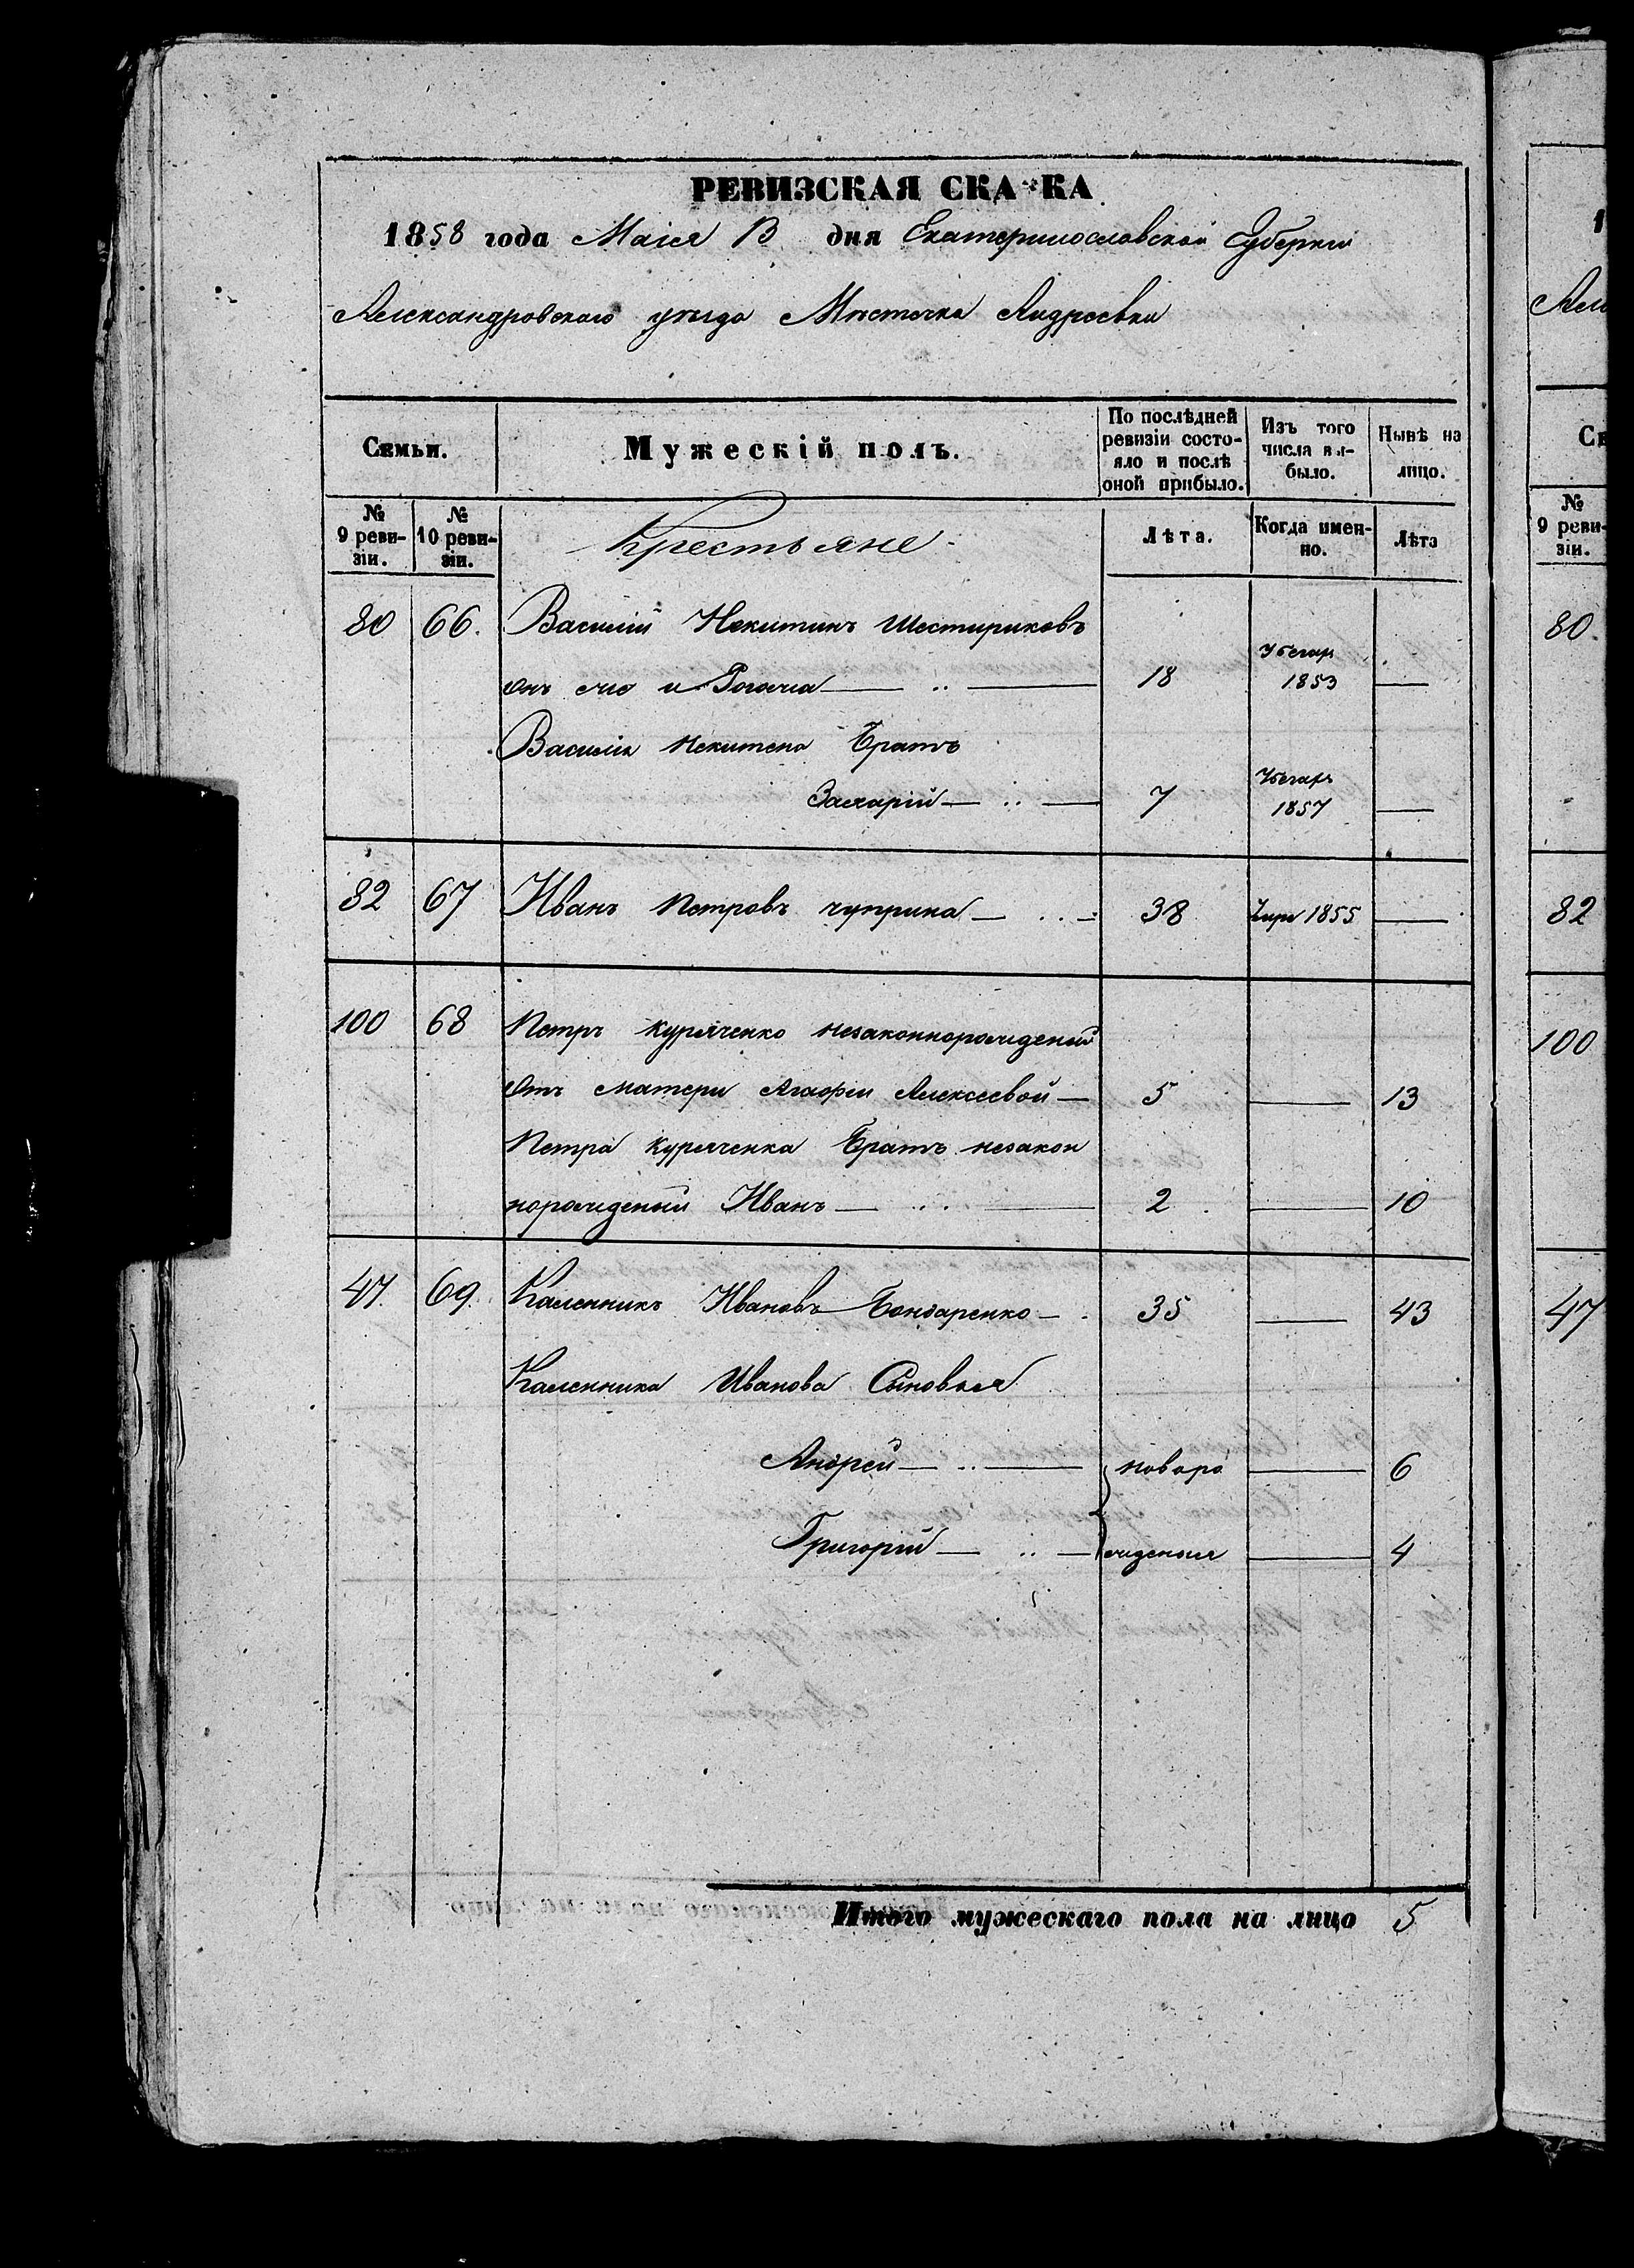 РЕВИЗСКАЯ СКА КА
1858 года Маія дня Екатеринославской Губерніи
Александровскаго уѣзда Мѣстечка Андреевки
Семьи.
Мужескій полъ.
По послѣдней ревизіи состояло и послѣ оной прибыло.
Изъ того числа выбыло.
Нынѣ на лицо.
№ 9 ревизіи.
№ 10 ревизіи.
Крестьяне
Лѣта.
Когда именно.
Лѣта
80 66. Василій Некитинъ Шестириковъ
онъ же и 18 1853 —
Василія Некитена Братъ
Захарій — 7 1857 —
82 67 Иванъ Петровъ чуприна — 38 1855 —
100 68 Петръ Куряченко незаконнорожденый
Отъ матери Агафіи Алексеевой — 5 — 13
Петра Куряченка Братъ незакон
норожденый Иванъ — 2 — 10
47. 69. Каленникъ Ивановъ Бондаренко — 35 — 43
Каленника Иванова Сыновья
Андрей — новоро — 6
Григорій — жденыя — 4
Итого мужескаго пола на лицо 5
1
Алек
Се
№ 9 реви-
зіи.
80.
82
100
47